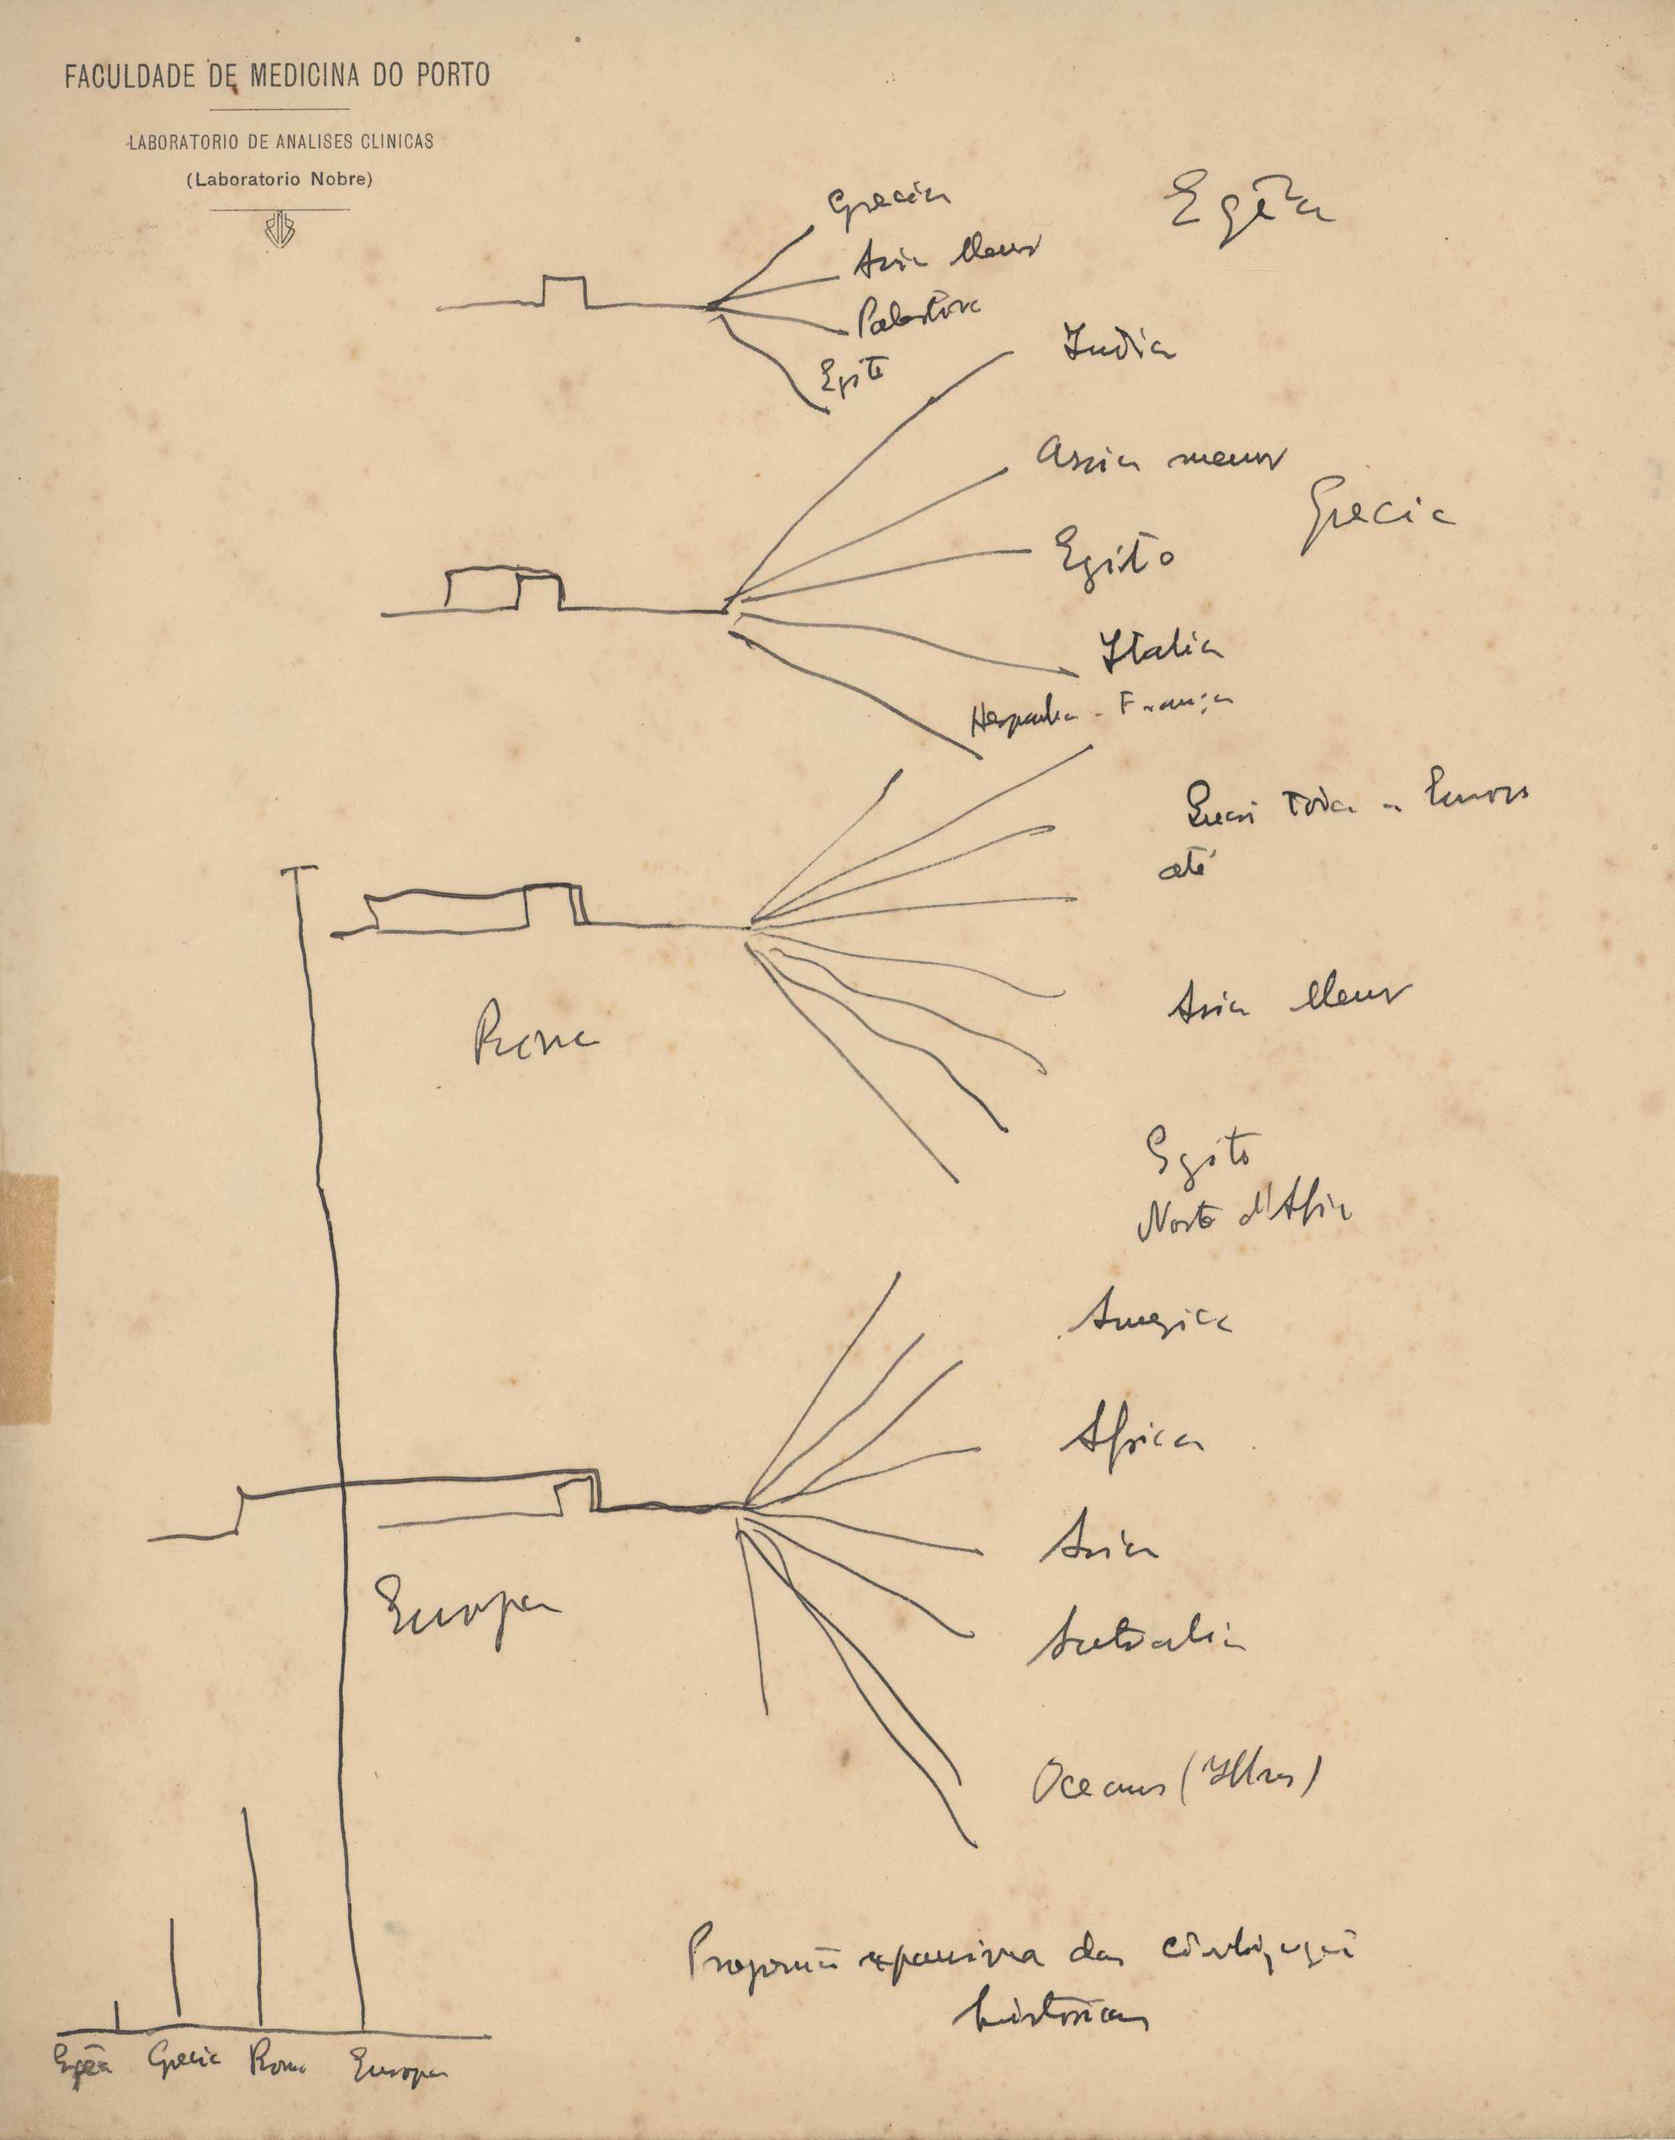 FACULDADE DE MEDICINA DO PORTO
LABORATORIO DE ANALISES CLINICAS
(Laboratorio Nobre)
Egêa
Grecia
Asia Menor
Palestina
Egito
India
Assia menor
Grecia
Egito
Italia
Hespanha - França
Quasi toda a Europa
até
Asia Menor
Roma
Egito
Norte d'Africa
America
Africa
Asia
Europa
Australia
Oceanos (Ilhas)
expansiva das
historicas
Egêa Grecia Roma Europa